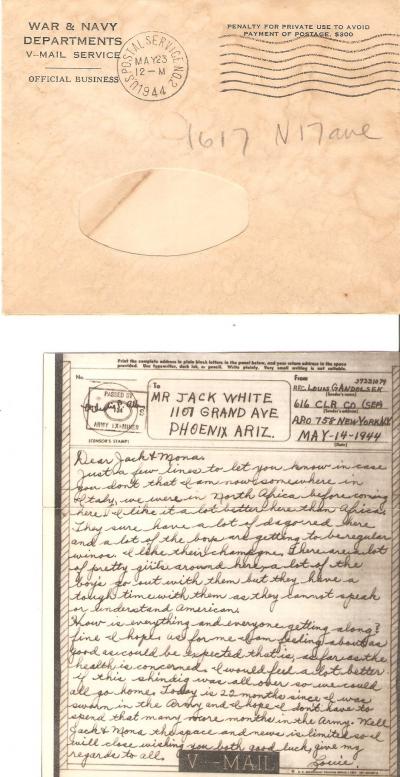 WAR & NAVY
DEPARTMENTS
V-MAIL SERVICE
OFFICIAL BUSINESS
U.S. POSTAL SERVICE NO. 2
MAY 23
12-M
1944
PENALTY FOR PRIVATE USE TO AVOID
PAYMENT OF POSTAGE, $300
1617 N 17 ave
Print the complete address in plain block letters in the panel below, and your return address in the space
provided. Use typewriter, dark ink, or pencil. Write plainly. Very small writing is not suitable.
No.
PASSED BY
ARMY EXAMINER
(CENSOR'S STAMP)
To
MR JACK WHITE
1101 GRAND AVE
PHOENIX ARIZ.
From
LOUIS GANDOLSEK
(Sender's name)
616 CLR CO (SEP)
(Sender's address)
APO 758 NEW YORK NY
MAY-14-1944
(Date)
Dear Jack & Mona.
Just a few lines to let you know in case
you don't that I am now somewhere in
Italy, we were in North Africa before coming
here. I like it a lot better here than Africa.
They sure have a lot of here
and a lot of the boys are getting to be regular
winos. I like their There are a lot
of pretty girls around here, a lot of the
boys go out with them but they have a
tough time with them as they cannot speak
or understand American.
How is everything and everyone getting along?
fine I hope. as for me I am feeling about as
good as could be expected that is, as far as the
health is concerned. I would feel a lot better
if this shindig was all over so we could
all go home. Today is 22 months since I was
sworn in the Army and I hope I don't have to
spend that many more months in the Army. Well
Jack & Mona the space and news is limited so I
will close wishing you both good luck, give my
regards to all.
Louie
V - MAIL